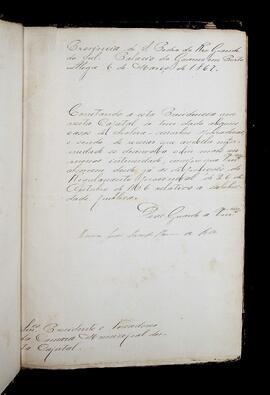 Provincia de S. Pedro do Rio Grande
do Sul. Palacio do Governo em Porto
Alegre 6 de Março de 1867.
Constando a esta Presidencia que
nesta Capital se tem dado alguns
casos de cholera-morbus
e sendo de receiar que aquella enfer-
midade se desenvolva com mais ou
menos intensidade,
desde já as disposições do
Regulamento Provincial de 26 de
Outubro de relativas a salubri-
dade publica.
Deos Guarde a Vmces
Snrs. Presidente e Vereadores
da Camara Municipal des-
ta Capital.